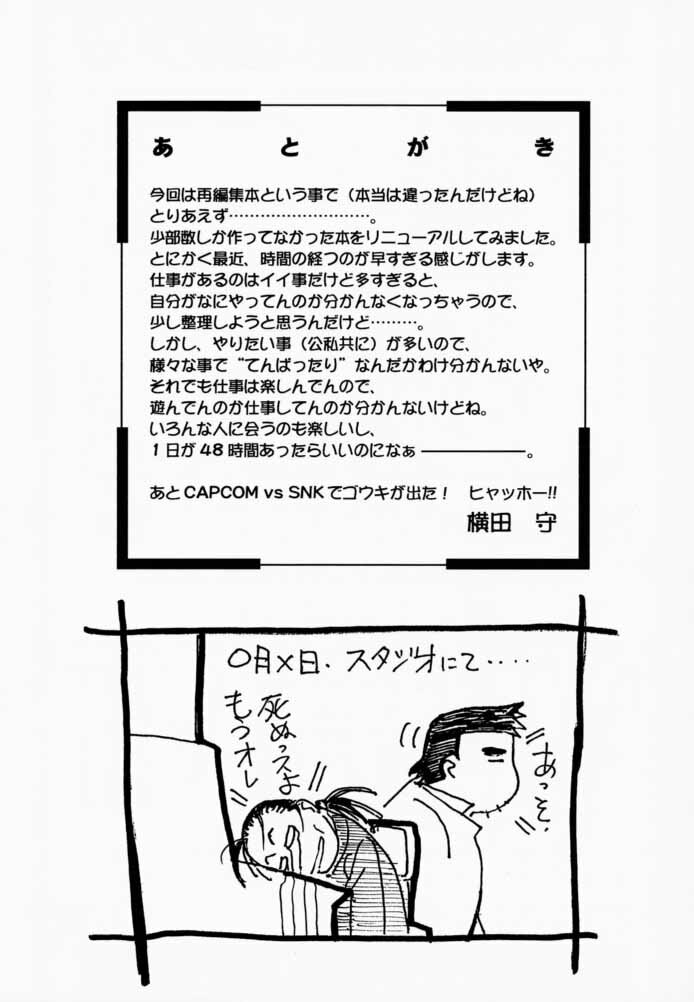 あとがき
今回は再編集本という事で（本当は違ったんだけどね）
とりあえず………………………。
少部数しか作ってなかった本をリニューアルしてみました。
とにかく最近、時間の経つのが早すぎる感じがします。
仕事があるのはイイ事だけど多すぎると、
自分がなにやってんのか分かんなくなっちゃうので、
少し整理しようと思うんだけど………。
しかし、やりたい事（公私共に）が多いので、
様々な事で“てんぱったり”なんだかわけ分かんないや。
それでも仕事は楽しんでんので、
遊んでんのか仕事してんのか分かんないけどね。
いろんな人に会うのも楽しいし、
１日が48時間あったらいいのになぁ――――。
あとCAPCOM vs SNKでゴウキが出た！　ヒャッホー!!
横田　守
〇月×日、スタジオにて‥‥
あっそ．
死ぬっスよ
もうオレ